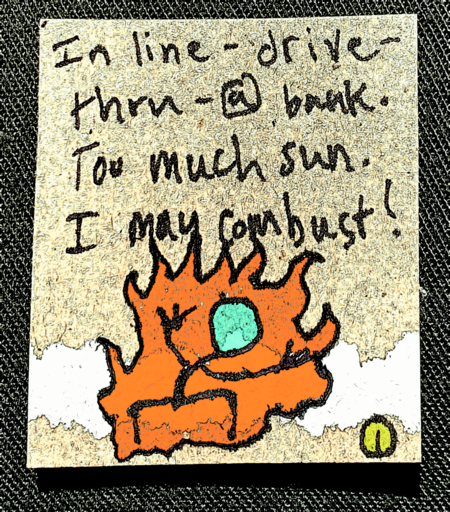 In line - drive -
thru - @ bank.
Too much sun.
I may combust!